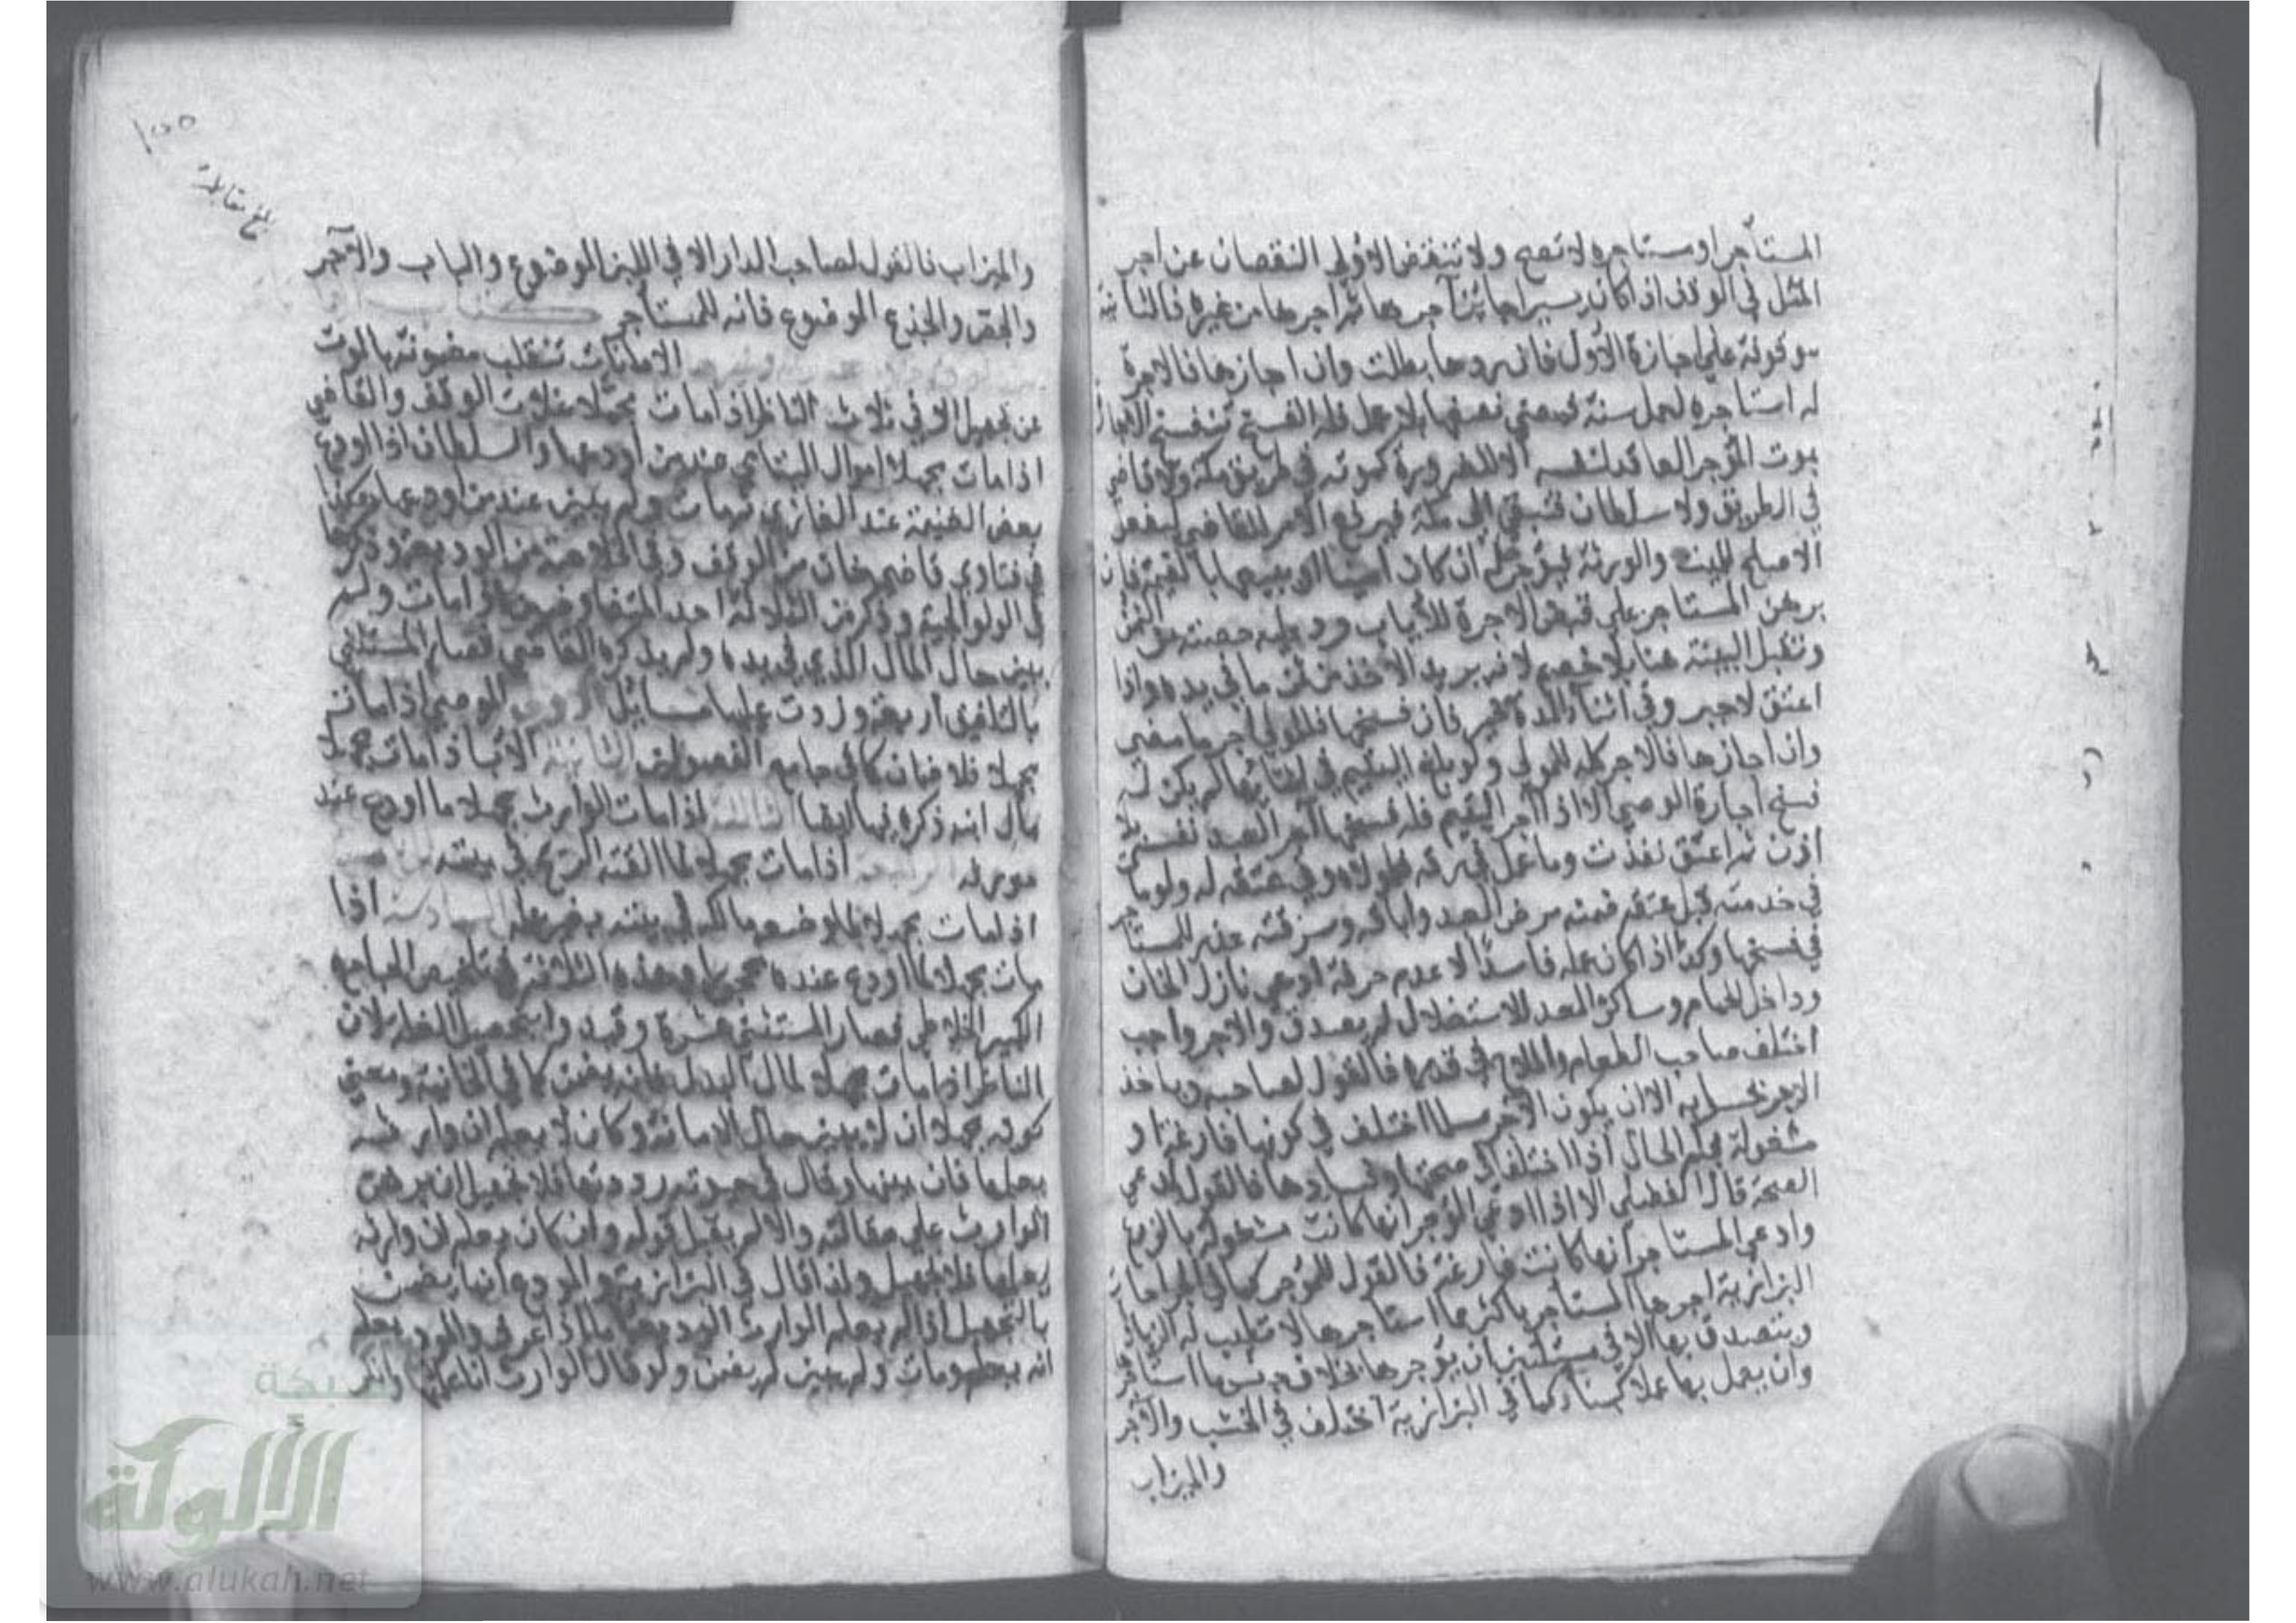 المستأجر او مستاجره لا تصح ولا تنتقض الاولى النقصان عن اجر
المثل في الوقف اذا كان يسيرا جائز آجرها ثم اجرها من غيره فالثانية
موقوفة على اجازة الاول فان ردها بطلت وان اجازها فالاجرة
له استاجره لعمل سنة فمضى نصفها بلا عمل فله الفسخ تنفسخ الاجارة
بموت المؤجر العاقد لنفسه الا لضرورة كموته في طريق مكة ولا قاضي
في الطريق ولا سلطان فتبقى الى مكة فيرفع الامر للقاضي ليفعل
الاصلح للميت والورثة فيؤجرها له ان كان امينا او يبيعها بالقيمة فان
برهن المستاجر على قبض الاجرة للاياب رد عليه حصته من الثمن
وتقبل البينة هنا بلا خصم لانه يريد الاخذ من ثمن ما في يده واذا
اعتق لاجير وفي اثناء المدة يخير فان فسخها فللمولى اجر ما مضى
وان اجازها فالاجر كله للمولى ولو بلغ اليتيم في اثنائها لم يكن له
فسخ اجارة الوصي الا اذا آجر اليتيم فله فسخها آجر العبد نفسه بلا
اذن ثم اعتق نفذت وما عمل في رقه فلمولاه وفي عتقه له ولو مات
في خدمته قبل عتقه ضمنه مرض العبد واباقه وسرقته عذر للمستاجر
في فسخها وكذا اذا كان عمله فاسدا لا عدم حرفة ادعى نازل الخان
وداخل الحمام وساكن المعد للاستغلال لم يصدق والاجر واجب
اختلف صاحب الطعام والملاح في قدره فالقول لصاحبه وياخذ
الاجر بحسابه الا ان يكون الاجر مسلما اختلف في كونها فارغة او
مشغولة يحكم الحال اذا اختلفا في صحتها وفسادها فالقول لمدعي
الصحة قال الفضلي الا اذا ادعى المؤجر انها كانت مشغولة بالزرع
وادعى المستاجر انها كانت فارغة فالقول للمؤجر كما في اجارات
البزازية اجرها المستأجر باكثر مما استأجرها لا تطيب له الزيادة
ويتصدق بها الا في مسئلتين ان يؤجرها بخلاف جنس ما استاجر
وان يعمل بها عملا كبناء كما في البزازية اختلف في الخشب والآجر
والميزاب
بلغ مقابلة
والميزاب فالقول لصاحب الدار الا في اللبن الموضوع والباب والآجر
والجص والجذع الموضوع فانه للمستأجر
الامانات تنقلب مضمونة بالموت
عن تجهيل الا في ثلاث الناظر اذا مات مجهلا غلات الوقف والقاضي
اذا مات مجهلا اموال اليتامى عند من اودعها والسلطان اذا اودع
بعض الغنيمة عند الغازي ثم مات ولم يبين عند من اودعها هكذا
في فتاوى قاضي خان من الوقف وفي الخلاصة من الوديعة وذكرها
في الولوالجية وذكر من الثلاثة احد المتفاوضين اذا مات ولم
يبين حال المال الذي في يده ولم يذكر القاضي فصار المستثنى
بالتلفيق اربعة وزدت عليها مسائل الاولى الوصي اذا مات
مجهلا فلا ضمان كما في جامع الفصولين الثانية الاب اذا مات مجهلا
مال ابنه ذكره فيها ايضا الثالثة اذا مات الوارث مجهلا ما اودع عند
مورثه الرابعة اذا مات مجهلا لما القته الريح في بيته
اذا مات مجهلا لما وضعه مالكه في بيته بغير علمه السادسة اذا
مات مجهلا لما اودع عنده محجورا وهذه الثلاثة في تلخيص الجامع
الكبير الخلاطي فصار المستثنى عشرة وقيد وا بتجهيل الغلة لان
الناظر اذا مات مجهلا لمال البدل فانه يضمن كما في الخانية ومعنى
كونه مجهلا ان لا يبين حال الامانة وكان لا يعلم ان وارثه
يعلمها فان بينها وقال في حيوته رددتها فلا تجهيل ان برهن
الوارث على مقالته والا لم يقبل قوله وان كان يعلم ان وارثه
يعلمها فلا تجهيل ولذا قال في البزازية والمودع انما يضمن
بالتجهيل اذا لم يعلم الوارث الوديعة اما اذا عرف والمودع يعلم
انه يعلم ومات ولم يبين لم يضمن ولو قال الوارث انا علمتها وانكر
شبكة
الألوكة
www.alukah.net